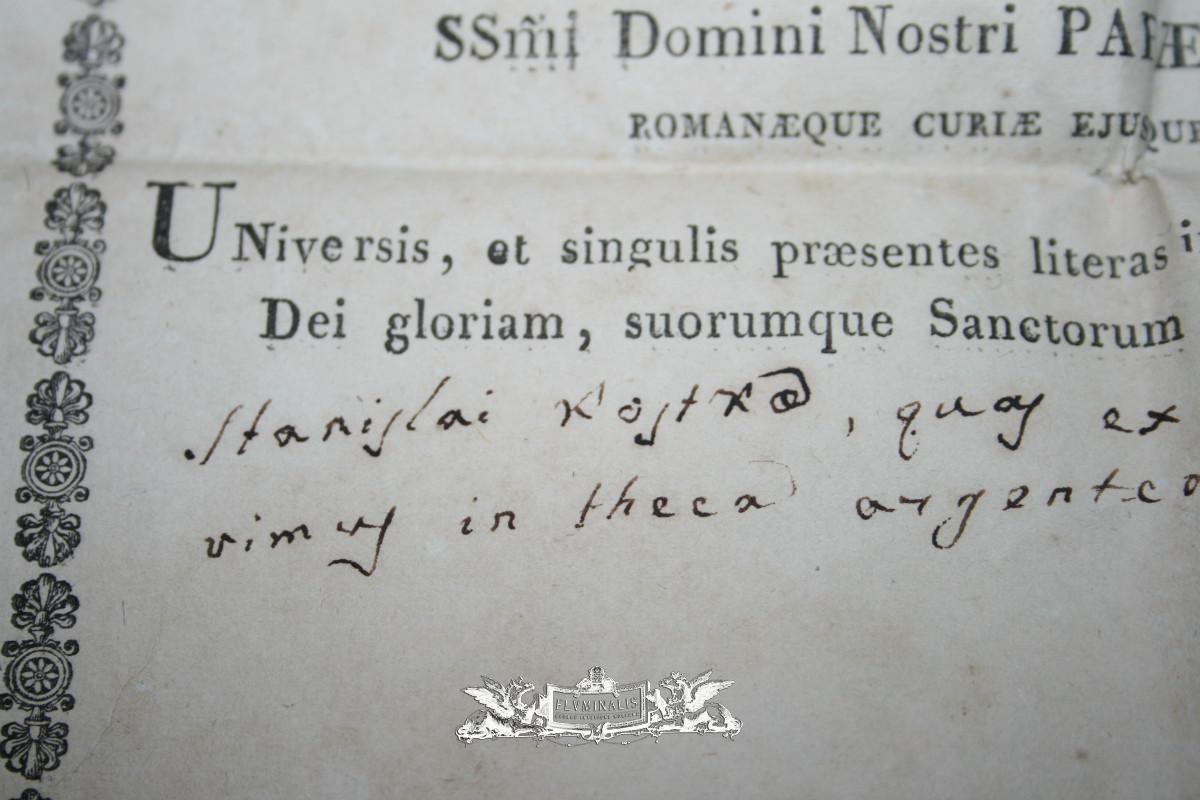 SSm̃i Domini Nostri PAPÆ
ROMANÆQUE CURIÆ EJUSQUE
UNiversis, et singulis præsentes literas i
Dei gloriam, suorumque Sanctorum
Stanislai Kostkæ, quas ex
vimus in theca argentea
FLVMINALIS